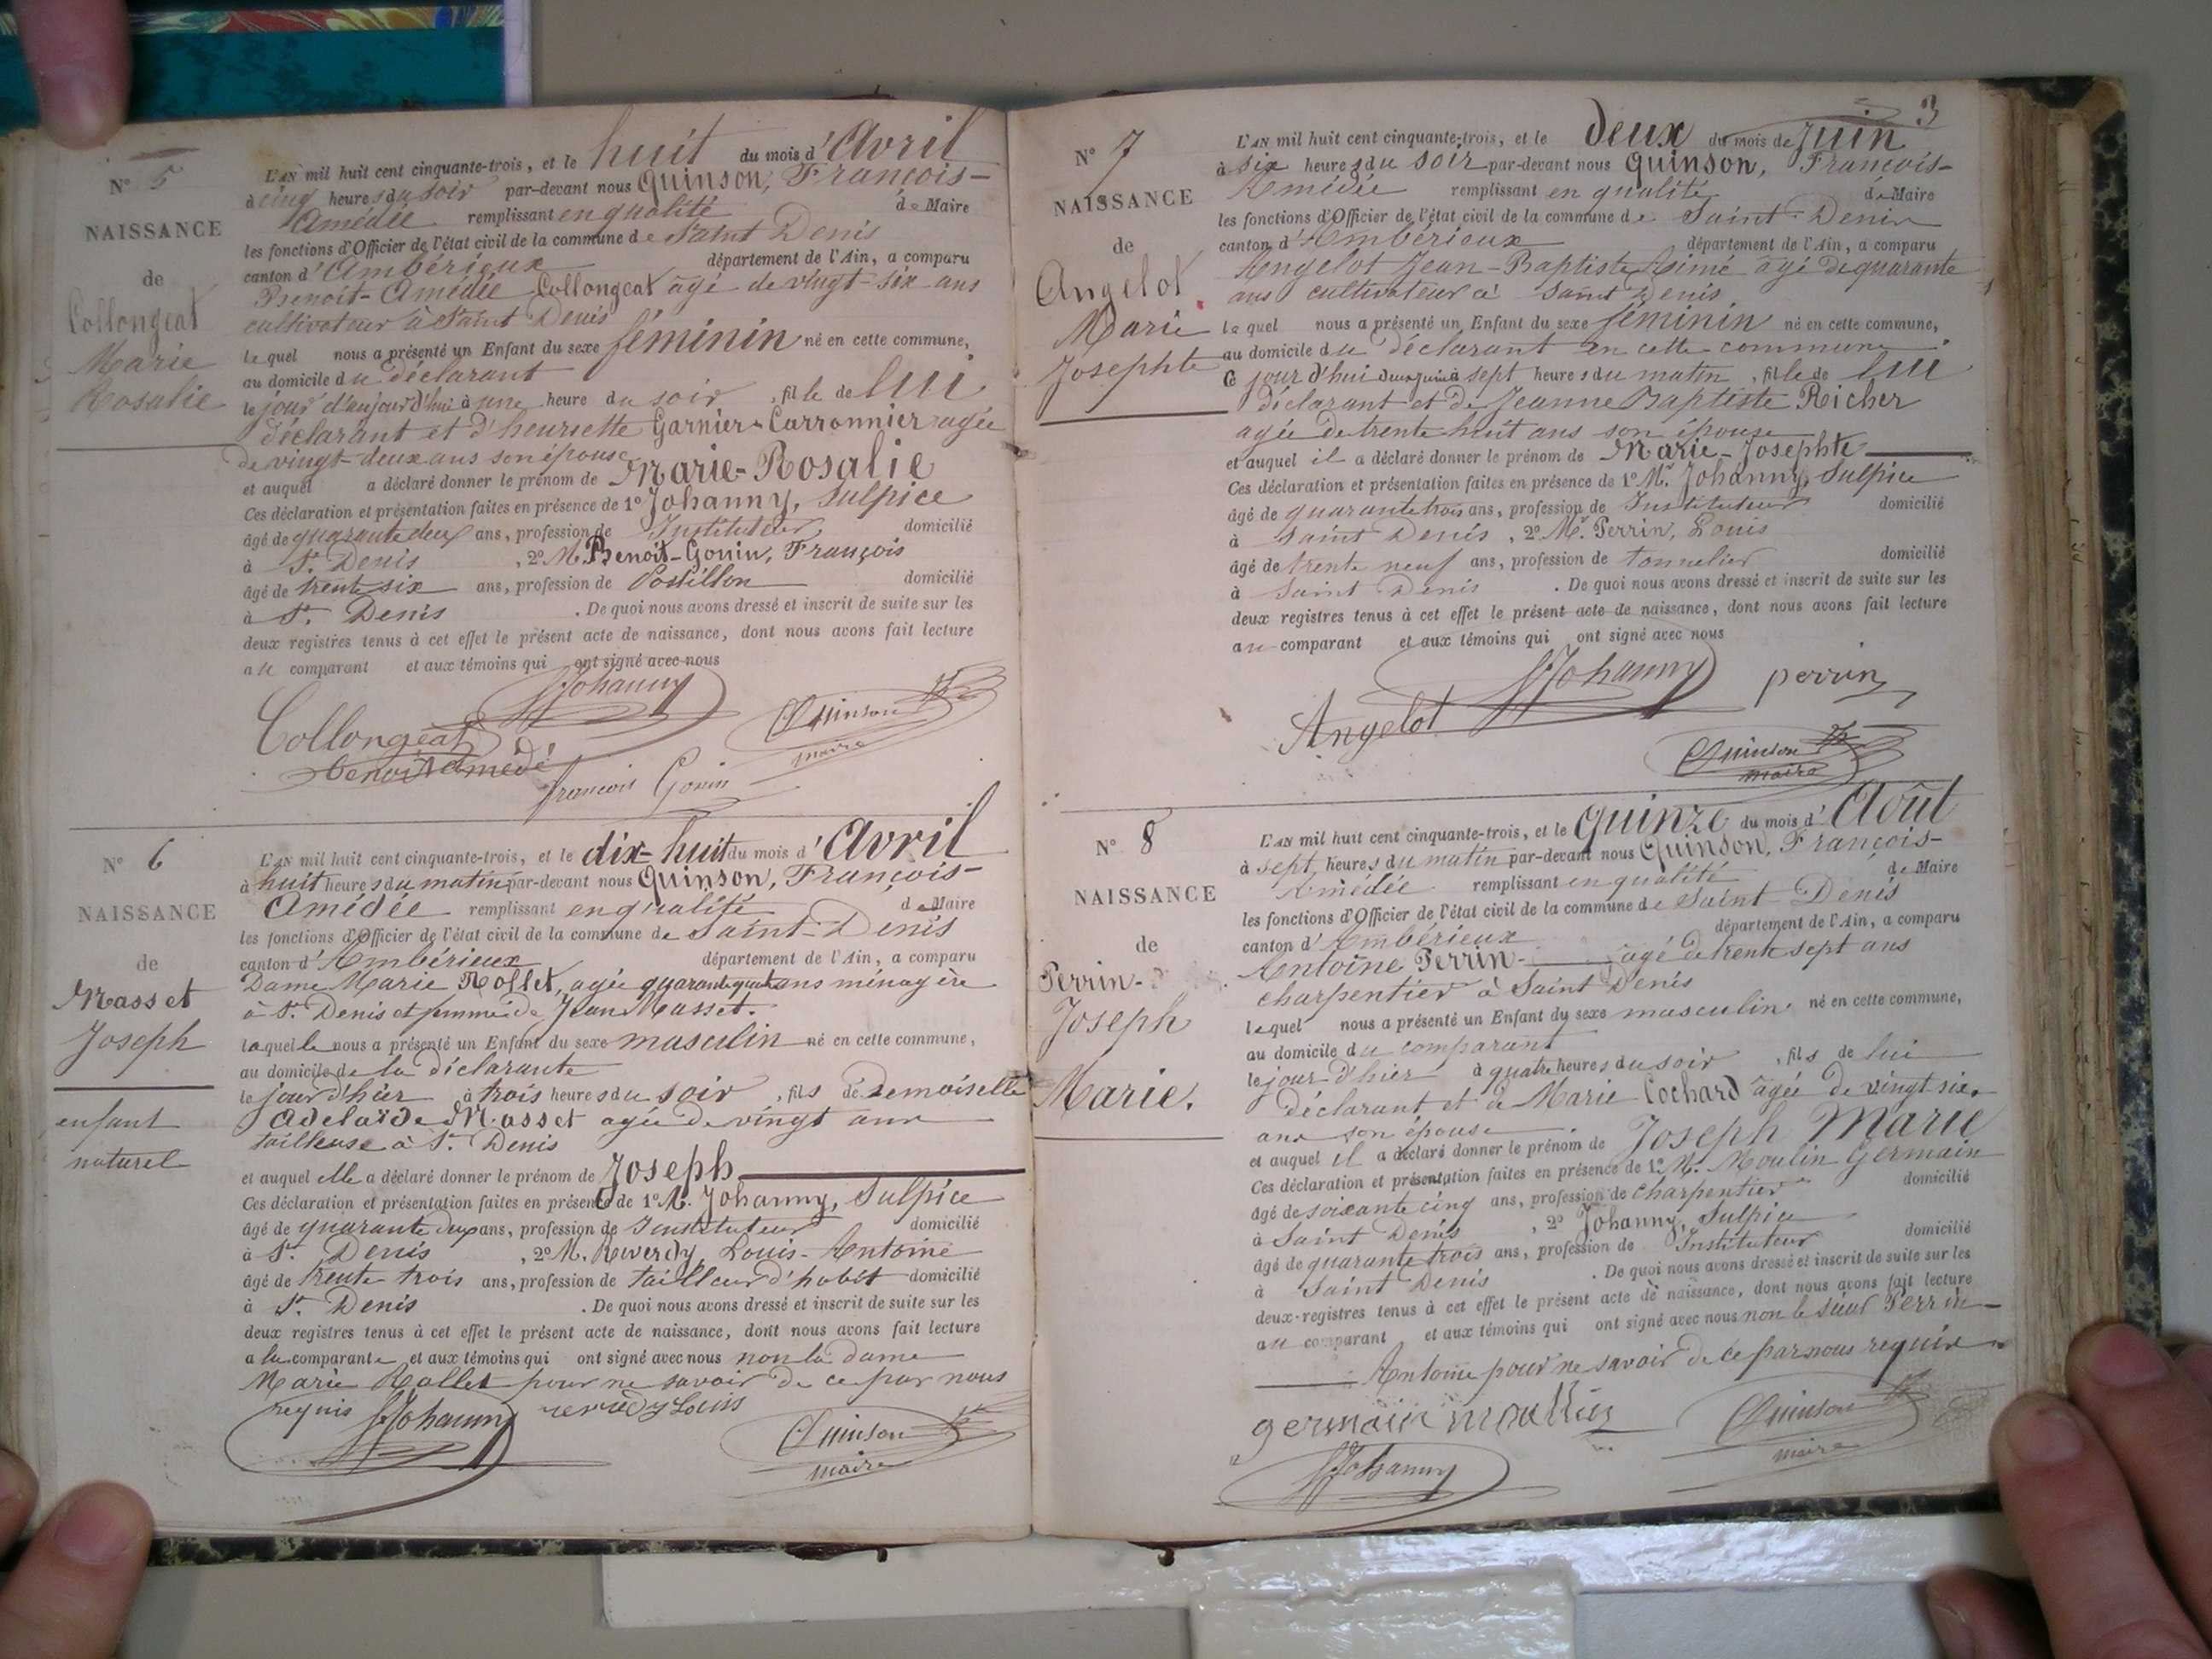 N° 5
NAISSANCE
de
Collongeat
Marie
Rosalie
L'AN mil huit cent cinquante-trois, et le huit du mois d'Avril
à cinq heures du soir par-devant nous Quinson, François-
Amédée remplissant en qualité de Maire
les fonctions d'Officier de l'état civil de la commune de Saint Denis
canton d'Ambérieux département de l'Ain, a comparu
Benoit-Amédée Collongeat âgé de vingt-six ans
cultivateur à Saint Denis
lequel nous a présenté un Enfant du sexe féminin né en cette commune,
au domicile du déclarant
le jour d'aujourd'hui à une heure du soir, fille de lui
déclarant et d'henriette Garnier-Carronnier agée
de vingt-deux ans son épouse
et auquel a déclaré donner le prénom de Marie-Rosalie
Ces déclaration et présentation faites en présence de 1° Johanny, Sulpice
âgé de quarante deux ans, profession de Instituteur domicilié
à St. Denis, 2° M. Benoit-Gonin, François
âgé de trente six ans, profession de Postillon domicilié
à St. Denis. De quoi nous avons dressé et inscrit de suite sur les
deux registres tenus à cet effet le présent acte de naissance, dont nous avons fait lecture
au comparant et aux témoins qui ont signé avec nous
Johanny
Collongeat
benoit amedé
Quinson
maire
françois Gonin
N° 6
NAISSANCE
de
Masset
Joseph
enfant
naturel
L'AN mil huit cent cinquante-trois, et le dix-huit du mois d'Avril
à huit heures du matin par-devant nous Quinson, François-
Amédée remplissant en qualité de Maire
les fonctions d'Officier de l'état civil de la commune de Saint-Denis
canton d'Ambérieux département de l'Ain, a comparu
Dame Marie Rollet, agée quarante quatre ans ménagère
à St. Denis et femme de Jean Masset.
laquelle nous a présenté un Enfant du sexe masculin né en cette commune,
au domicile de la déclarante
le jour d'hier à trois heures du soir, fils de Demoiselle
Adelaïde Masset agée de vingt ans
tailleuse à St. Denis
et auquel elle a déclaré donner le prénom de Joseph
Ces déclaration et présentation faites en présence de 1° M. Johanny, Sulpice
âgé de quarante deux ans, profession de Instituteur domicilié
à St. Denis, 2° M. Reverdy, Louis-Antoine
âgé de trente trois ans, profession de tailleur d'habit domicilié
à St. Denis. De quoi nous avons dressé et inscrit de suite sur les
deux registres tenus à cet effet le présent acte de naissance, dont nous avons fait lecture
a la comparante et aux témoins qui ont signé avec nous non la dame
Marie Rollet pour ne savoir de ce par nous
requis Johanny reverdy Louis
Quinson
maire
3
N° 7
NAISSANCE
de
Angelot
Marie
Josephte
L'AN mil huit cent cinquante-trois, et le deux du mois de Juin
à six heures du soir par-devant nous Quinson, François-
Amédée remplissant en qualité de Maire
les fonctions d'Officier de l'état civil de la commune de Saint-Denis
canton d'Ambérieux département de l'Ain, a comparu
Angelot Jean-Baptiste Aimé âgé de quarante
ans cultivateur à Saint Denis
lequel nous a présenté un Enfant du sexe féminin né en cette commune,
au domicile du déclarant en cette commune
Ce jour d'hui deux juin à sept heures du matin, fille de lui
déclarant et de Jeanne Baptiste Richer
agée de trente huit ans son épouse
et auquel il a déclaré donner le prénom de Marie-Josephte
Ces déclaration et présentation faites en présence de 1° Mr. Johanny, Sulpice
âgé de quarante trois ans, profession de Instituteur domicilié
à Saint Denis, 2° Mr. Perrin, Louis
âgé de trente neuf ans, profession de tonnelier domicilié
à Saint Denis. De quoi nous avons dressé et inscrit de suite sur les
deux registres tenus à cet effet le présent acte de naissance, dont nous avons fait lecture
au comparant et aux témoins qui ont signé avec nous
Johanny perrin
Angelot
Quinson
maire
N° 8
NAISSANCE
de
Perrin-
Joseph
Marie.
L'AN mil huit cent cinquante-trois, et le quinze du mois d'Août
à sept heures du matin par-devant nous Quinson, François-
Amédée remplissant en qualité de Maire
les fonctions d'Officier de l'état civil de la commune de Saint-Denis
canton d'Ambérieux département de l'Ain, a comparu
Antoine Perrin âgé de trente sept ans
charpentier à Saint Denis
lequel nous a présenté un Enfant du sexe masculin né en cette commune,
au domicile du comparant
le jour d'hier à quatre heures du soir, fils de lui
déclarant et de Marie Cochard agée de vingt six
ans son épouse
et auquel il a déclaré donner le prénom de Joseph Marie
Ces déclaration et présentation faites en présence de 1° M. Moulin Germain
âgé de soixante cinq ans, profession de charpentier domicilié
à Saint Denis, 2° Johanny, Sulpice
âgé de quarante trois ans, profession de Instituteur domicilié
à Saint Denis. De quoi nous avons dressé et inscrit de suite sur les
deux registres tenus à cet effet le présent acte de naissance, dont nous avons fait lecture
au comparant et aux témoins qui ont signé avec nous non le sieur Perrin
Antoine pour ne savoir de ce par nous requis
germain moullin
Quinson
maire
Johanny